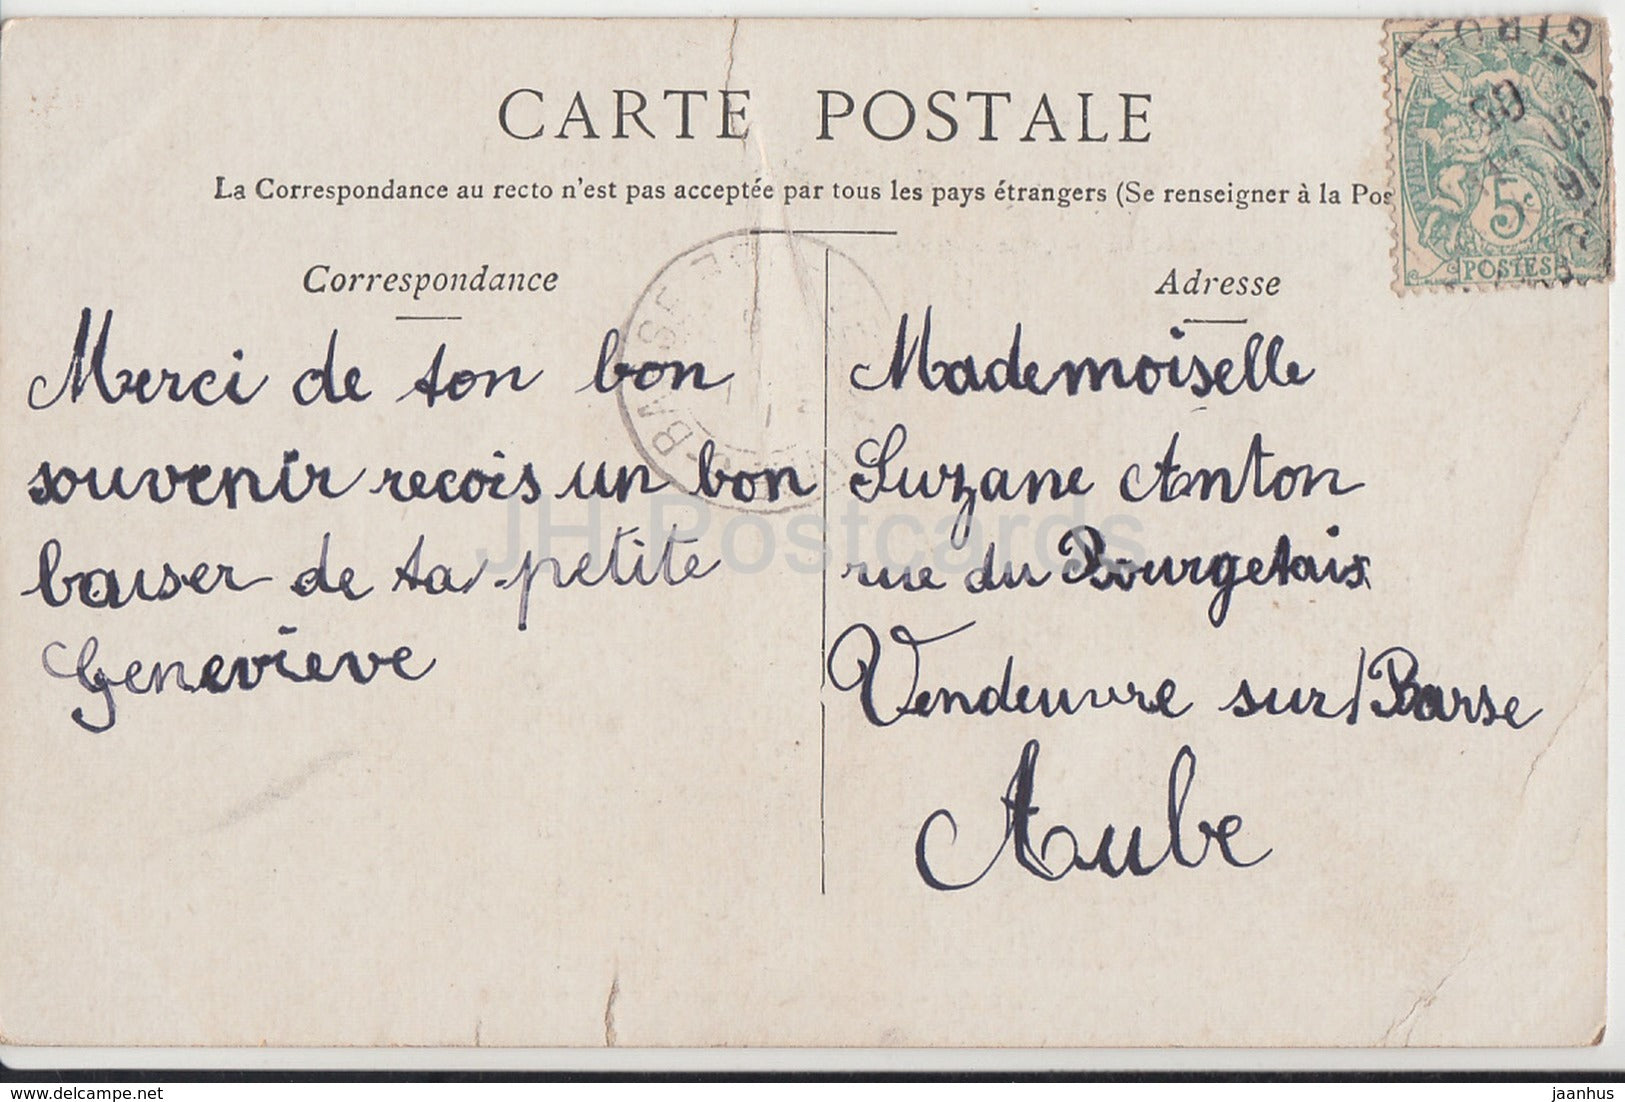 CARTE POSTALE
La Correspondance au recto n'est pas acceptée par tous les pays étrangers (Se renseigner à la Pos
Correspondance
Merci de ton bon
souvenir recois un bon
baiser de ta petite
Genevieve
Adresse
Mademoiselle
Suzane Anton
rue du Bourgetais
Vendeuvre sur/Barse
Aube
5c
POSTES
GIRO
05
BARSE
JH Postcards
delcampe.net
jaanhus